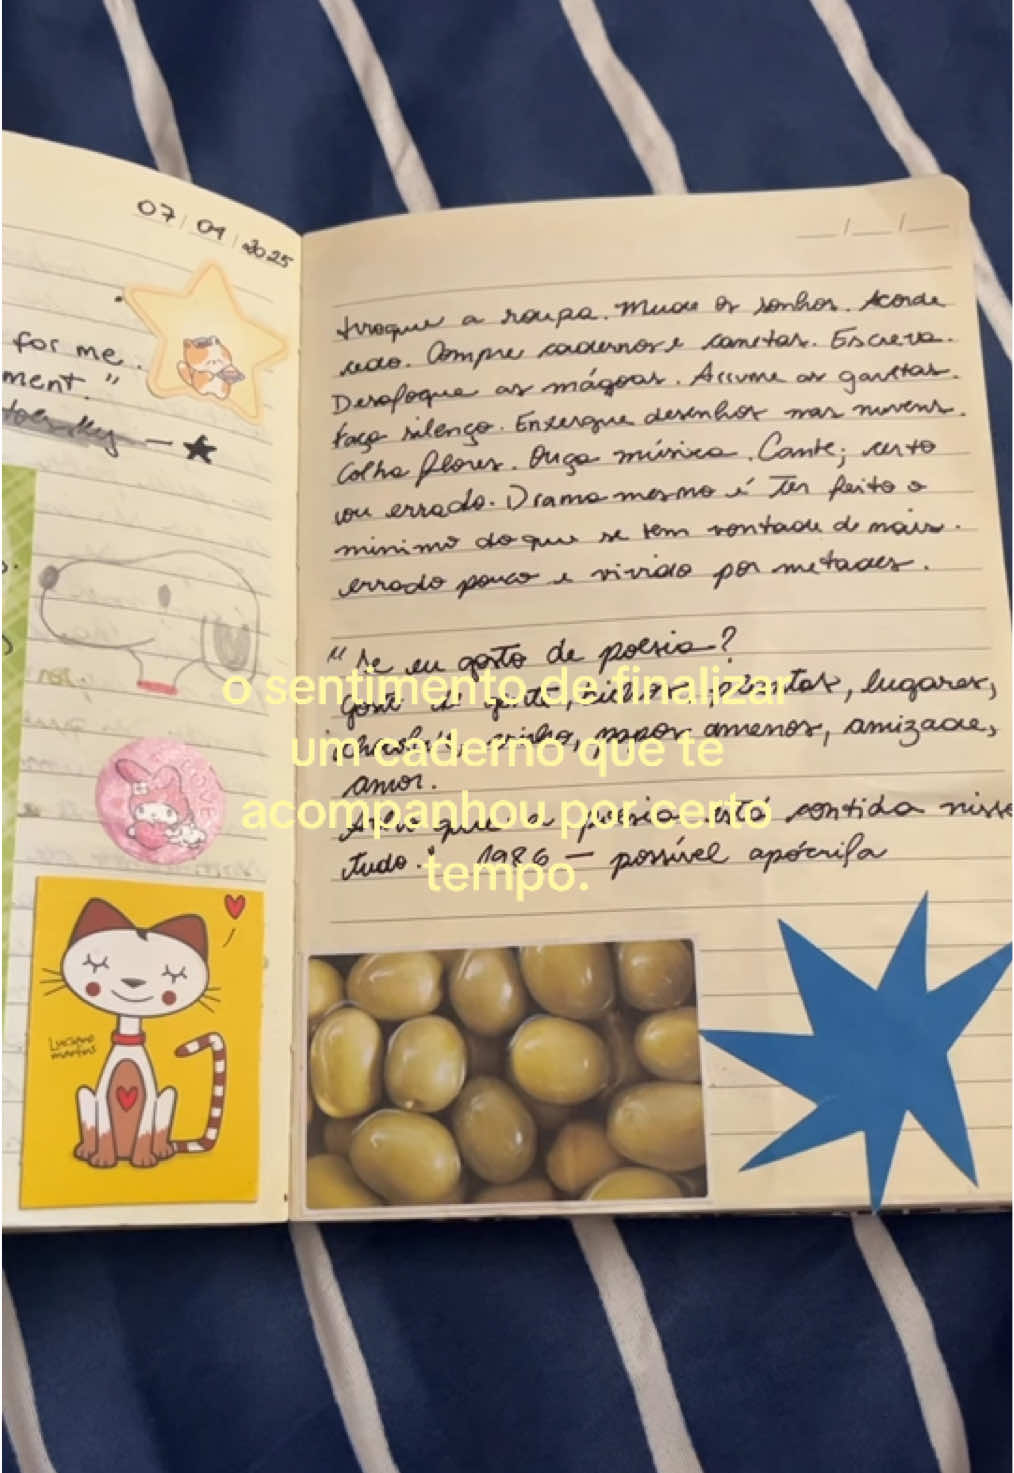 07/09/2025
for me.
ment."
troque a roupa. Mude os sonhos. Acorde
cedo. Compre cadernos e canetas. Escreva.
Desafogue as mágoas. Arrume as gavetas.
faça silenço. Enxergue desenhos nas nuvens.
Colha flores. Ouça música. Cante; certo
ou errado. Drama mesmo é ter feito o
minimo do que se tem vontade de mais.
errado pouco e vivido por metades.
"Se eu gosto de poesia?
Gosto de gente, bichos, plantas, lugares,
chocolate, vinho, papos amenos, amizade,
amor.
Acho que a poesia está contida nisso
tudo." 1986 — possível apócrifa
o sentimento de finalizar
um caderno que te
acompanhou por certo
tempo.
LOVE
Luciano
martins